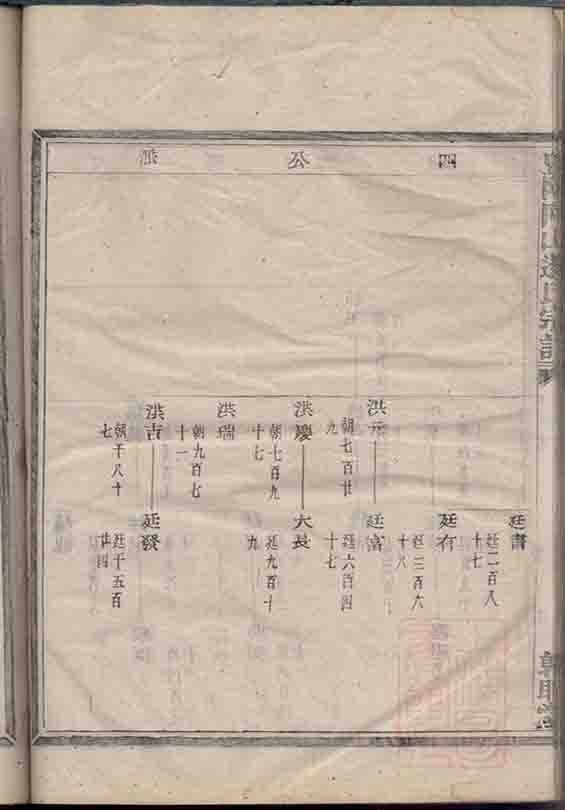 四公派
廷書
廷二百八十七
廷有
廷三百六十六
洪元
朝七百廿九
廷富
廷六百四十七
洪慶
朝七百九十七
大長
廷九百十九
洪瑞
朝九百七十一
洪吉
朝千八十七
廷發
廷千五百廿四